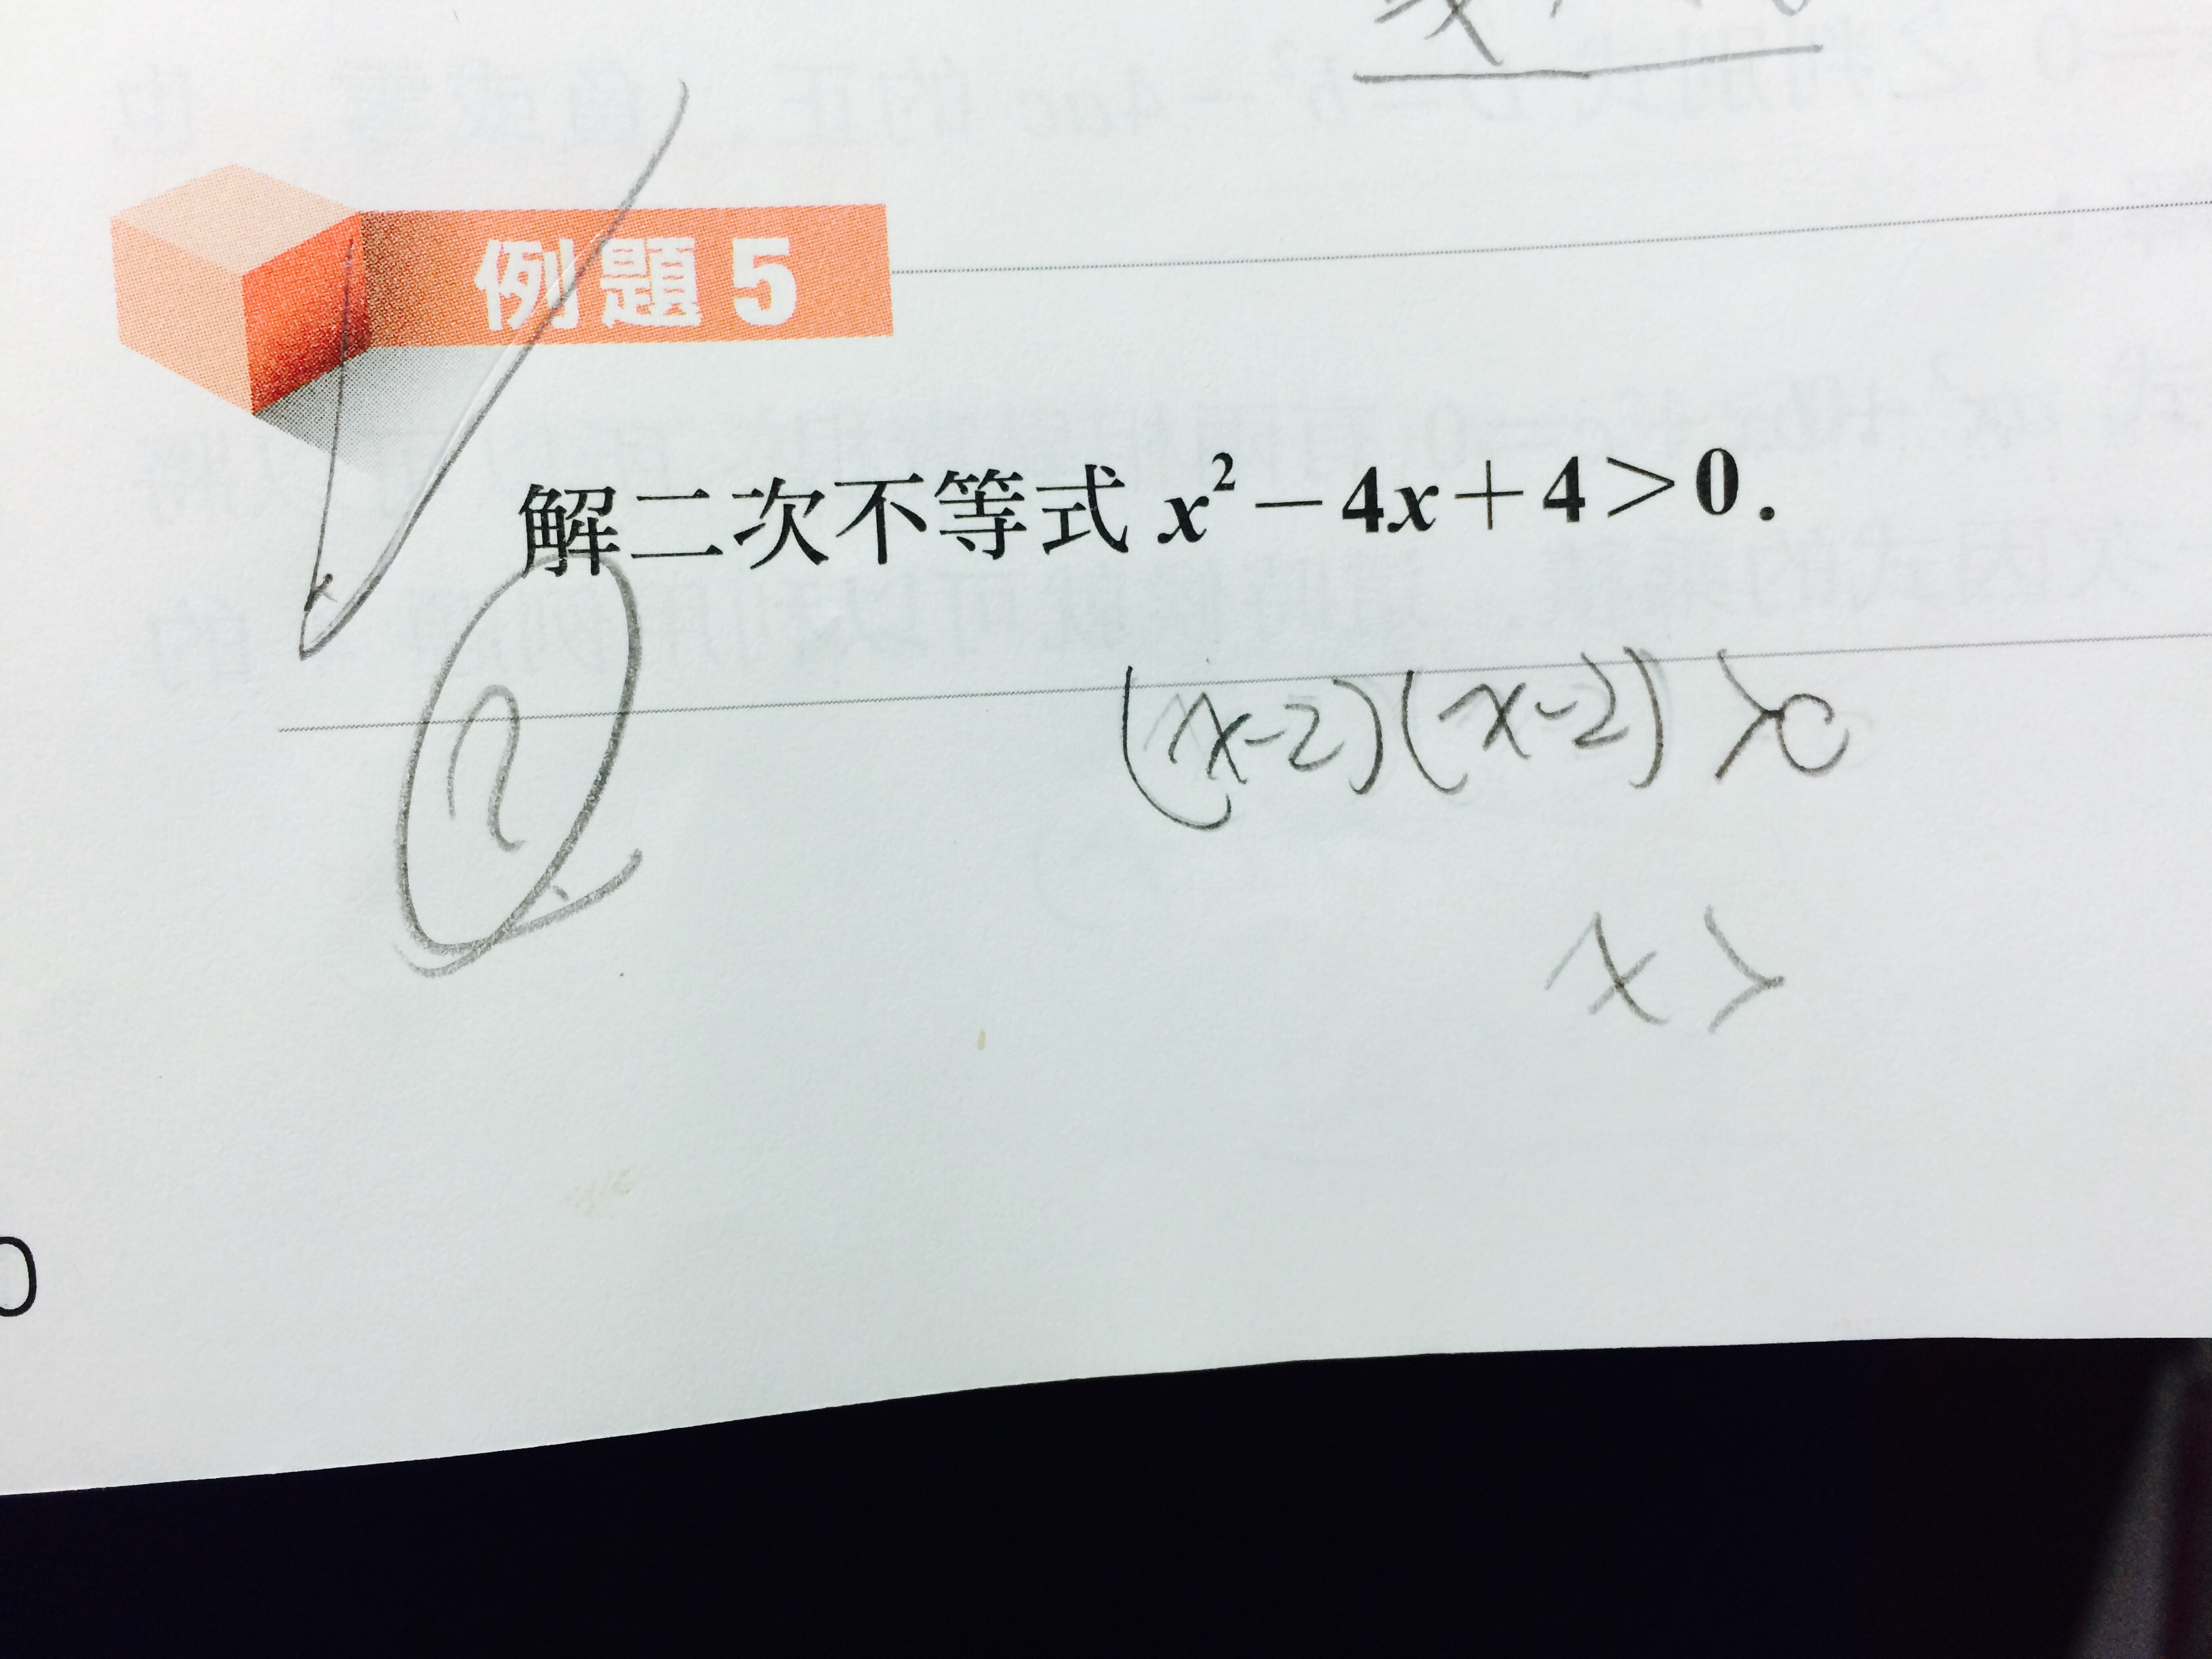 例題 5
解二次不等式 x² − 4x + 4 > 0 .
(x-2)(x-2) > 0
x >